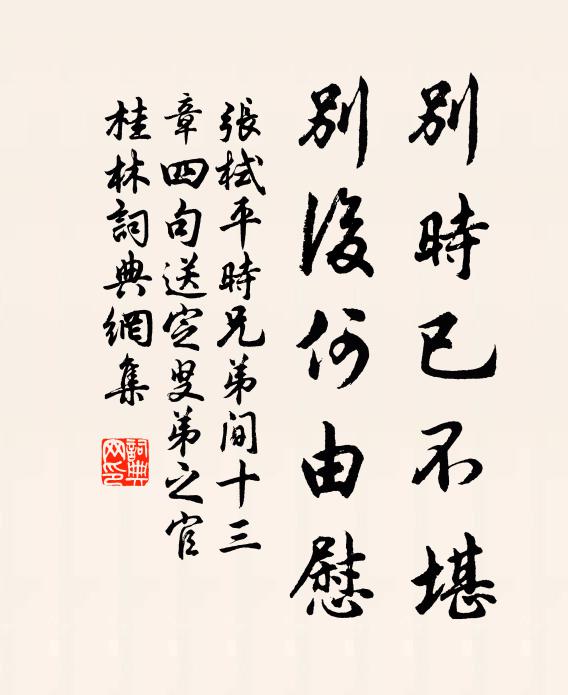 別時已不堪
別後何由慰
張栻平時兄弟間十三
章四句送定叟弟之官
桂林詞典網集
詞典
网印